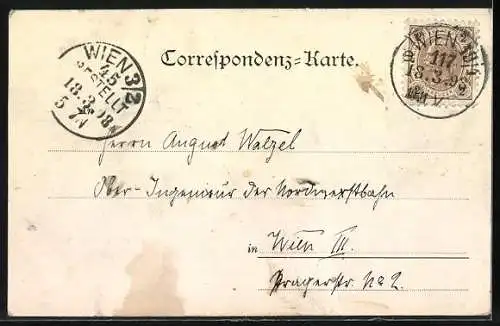 Correspondenz-Karte.
WIEN 3/2
45
BESTELLT
18.3.98
5-7N
WIEN
117
18.3.9
Herrn August Walzel
Ober-Ingenieur der Nordwestbahn
in Wien III.
Pragerstr. No 2.